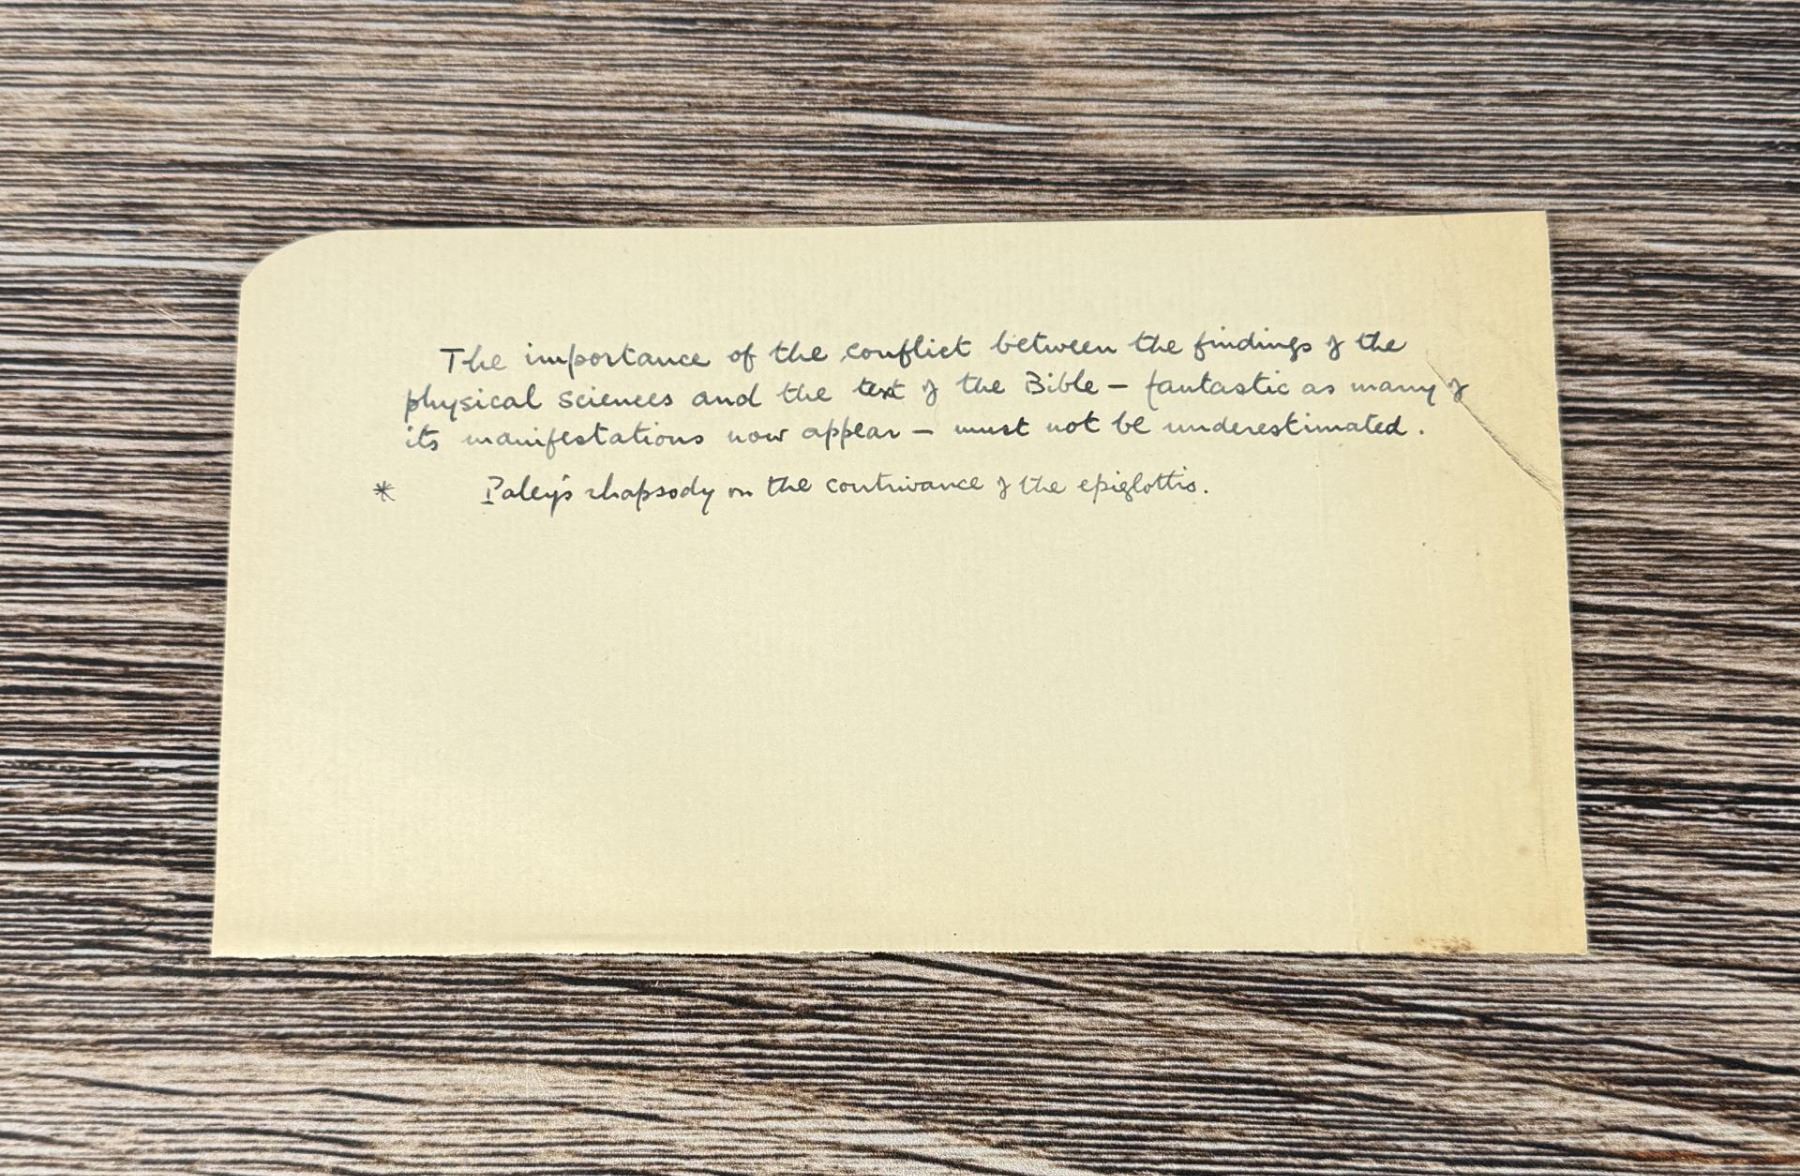 The importance of the conflict between the findings of the
physical sciences and the text of the Bible – fantastic as many of
its manifestations now appear – must not be underestimated.
* Paley's rhapsody on the contrivance of the epiglottis.